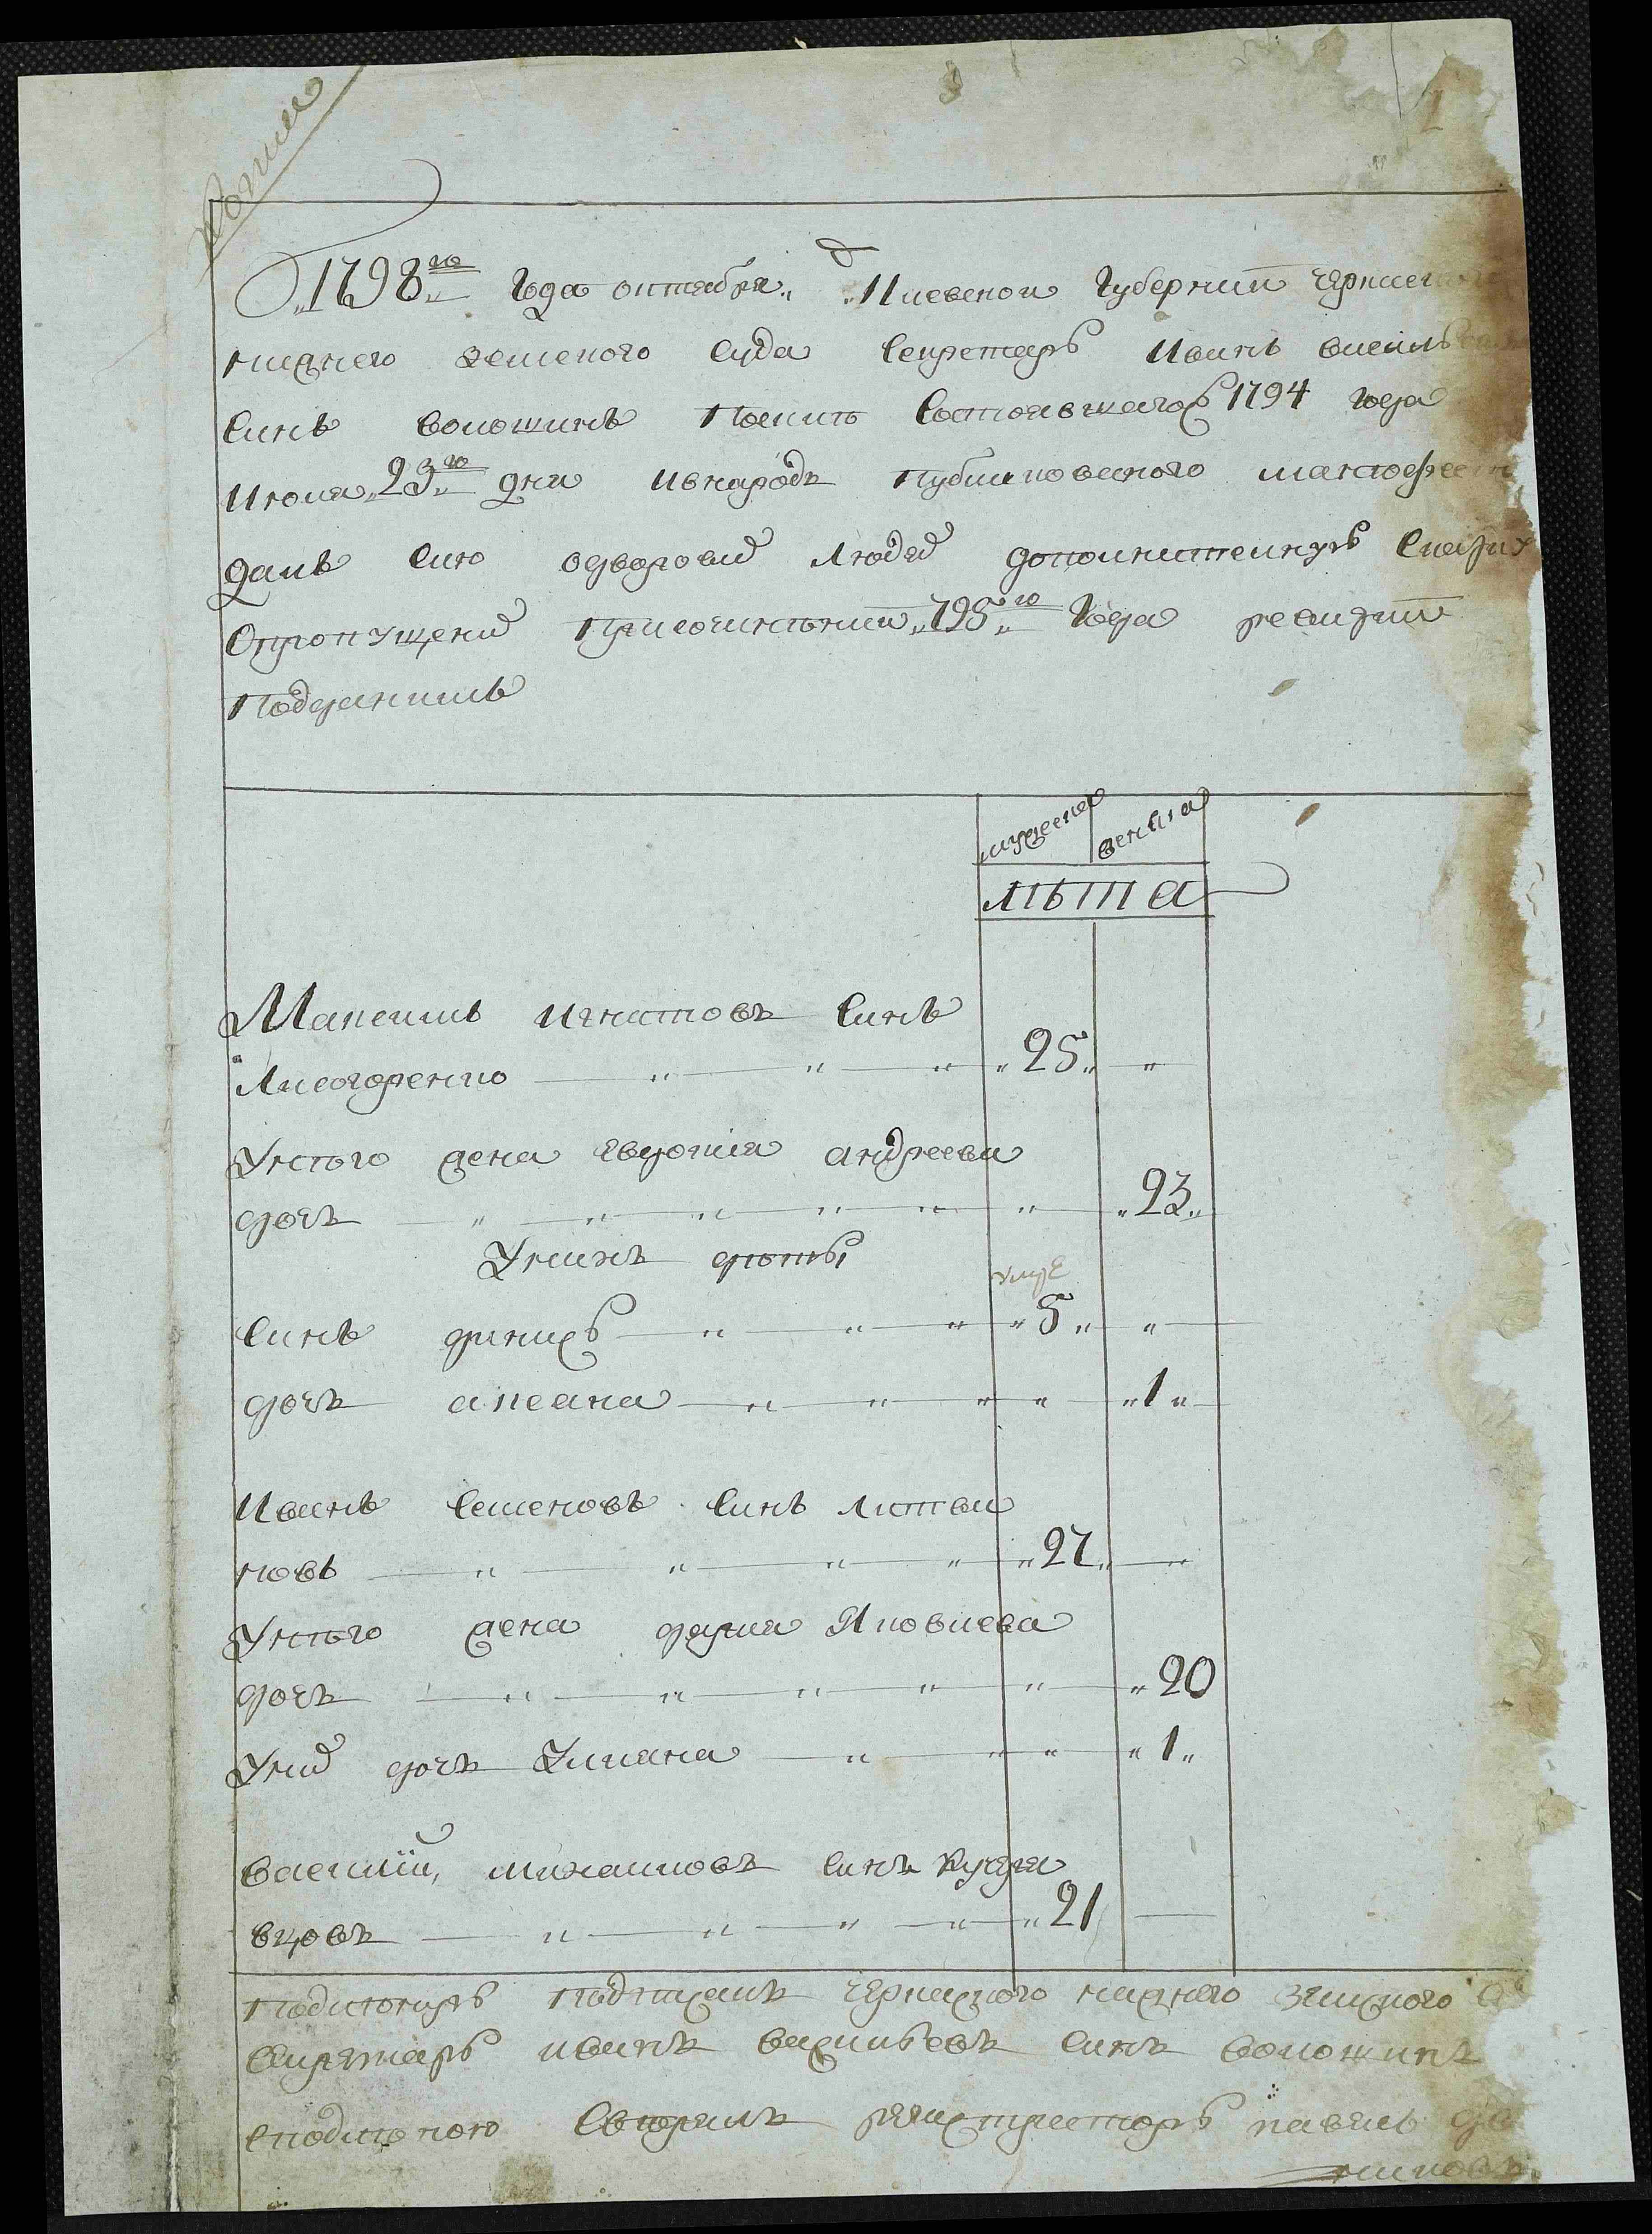 Копия
1798го Года октября Киевской Губернии Черкаского
нижнего земского Суда Секретарь Иванъ Василье
Синъ Волошинъ По силѣ Состоявшагось 1794 года
Июня 23го дня и в народъ публѣкованого манеѳес
далъ Сию одворовыхъ людяхъ дополнителную Скаску
О пропущених при сочинѣнии 795го Года ревизии
Подданимъ
мужеска
женска
лѣта
Максимъ Игнатовъ Синъ
Лисогоренко 25
У него жена Явдокия андреева
дочъ 23
У нихъ дѣты
умре
Синъ денисъ 5
дочъ аксана 1
Иванъ Семеновъ Синъ Литви
новъ 27
У него жена дария Яковлева
дочъ 20
У них дочъ Улиана 1
Василий, михаиловъ Синъ Кучеря
вцовъ 21
Подлѣнную Подписалъ черкаского нижнего земского
Секретарь иванъ василъевъ Синъ волошинъ
Сподлѣною Сверялъ регистраторъ павелъ